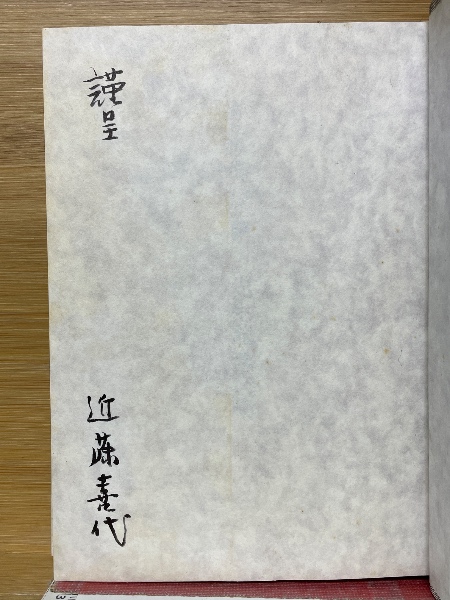 謹呈
近藤喜代